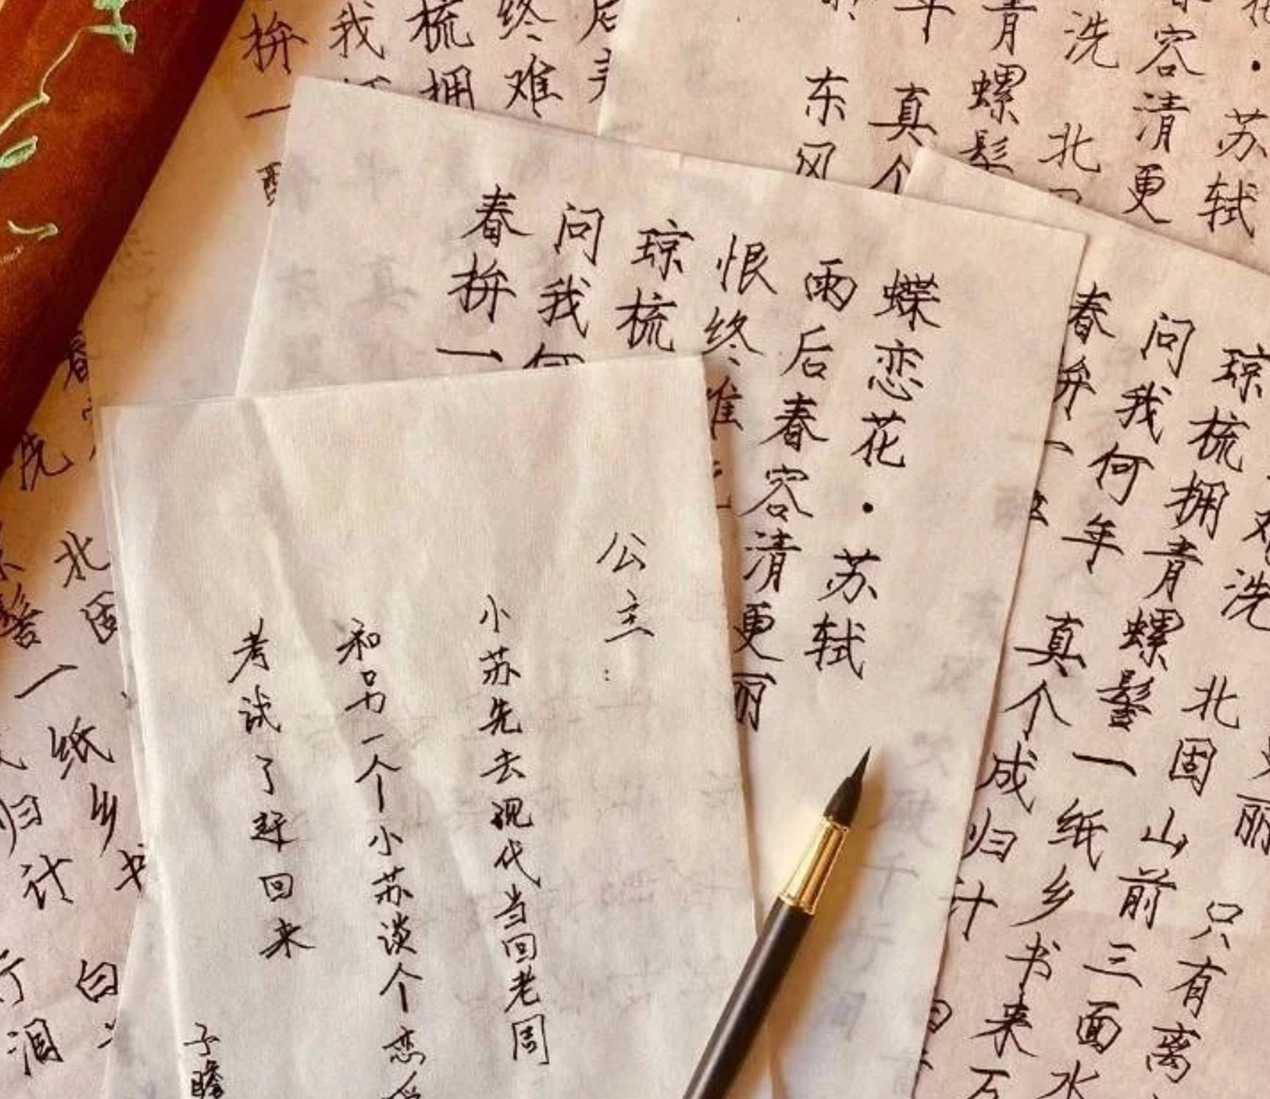 苏轼
容清更
洗 北
青螺髻
年 真个
东风
后
终难
梳拥
我
拚一
蝶恋花·苏轼
雨后春容清更丽
恨终难
琼梳
问我何
春拚一
丽 只有离
难洗 北固山前三面水
琼梳拥青螺髻一纸乡书来万
问我何年 真个成归计
春拚一
公主：
小苏先去现代当回老周
和另一个小苏谈个恋爱
考试了赶回来
子瞻
春
洗
北固
髻一纸乡书
归计 白
行泪